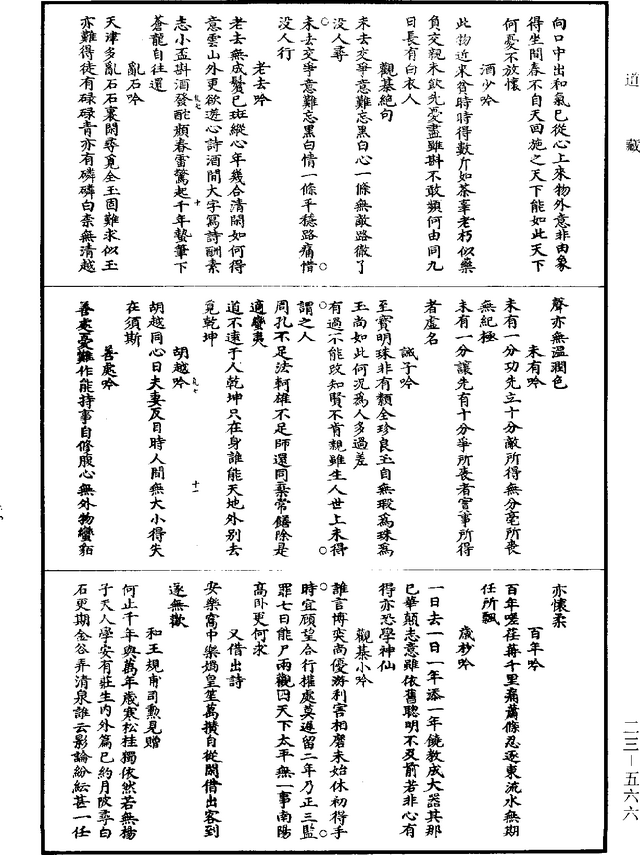 道藏
向口中出和氣已從心上來物外意非由象
得坐間春不自天回施之天下能如此天下
何憂不放懷
酒少吟
此物近來貧時時得數斤如茶辜老朽似藥
負交親未飲先憂盡雖斟不敢頻何由同九
日長有白衣人
觀棊絕句
未去交爭意難忘黑白心一條無敵路徹了
沒人尋
未去交爭意難忘黑白情一條平穩路痛惜
沒人行
老去吟
老去無成鬢已斑縱心年幾合清閑如何得
意雲山外更欲遊心詩酒間大字寫詩酬素
志小盃斟酒發酡顏春雷驚起千年蟄筆下
蒼龍自往還
亂石吟
天津多亂石石裏閟尋覓全玉固難求似玉
亦難得徒有碌碌青亦有磷磷白柰無清越
聲亦無溫潤色
未有吟
未有一分功先立十分敵所得無分毫所喪
無紀極
未有一分讓先有十分爭所喪者實事所得
者虛名
誡子吟
至寶明珠非有纇全珍良玉自無瑕為珠為
玉尚如此何況為人多過差
有過不能改知賢不肯親雖生人世上未得
謂之人
周孔不足法軻雄不足師還同棄常饍除是
適蠻夷
道不遠于人乾坤只在身誰能天地外別去
覓乾坤
胡越吟
胡越同心日夫妻反目時人間無大小得失
在須斯
善處吟
善處憂難作能持事自修腹心無外物蠻貊
亦懷柔
百年吟
百年嗟荏苒千里痛蕭條忍逐東流水無期
任所飄
歲杪吟
一日去一日一年添一年饒教成大器其那
已華顛志意雖依舊聰明不及前若非心有
得亦恐學神仙
觀棊小吟
誰言博奕尚優游利害相磨未始休初得手
時宜顧望合行權處莫遲留二年乃正三監
罪七日能尸兩觀囚天下太平無一事南陽
高卧更何求
又借出詩
安樂窩中樂媧皇笙萬攢自從閑借出客到
遂無歡
和王規甫司勳見贈
何止千年與萬年歲寒松桂獨依然若無揚
子天人學安有莊生內外篇已約月陂尋白
石更期金谷弄清泉誰云影論紛紜甚一任
二三—五六六